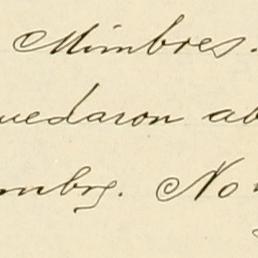 Mimbres.
uedaron ab
mbrs. No